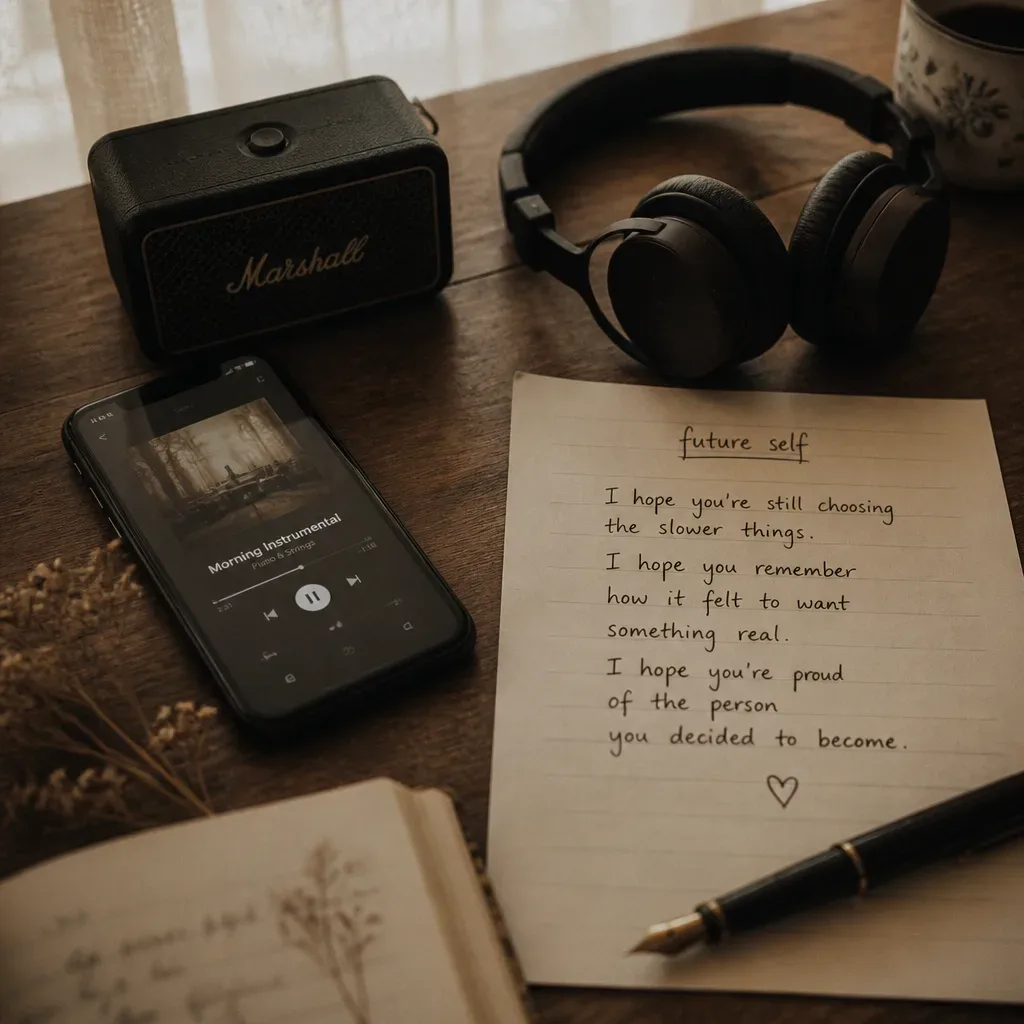 Marshall
Morning Instrumental
Piano & Strings
2:31
-1:16
future self
I hope you're still choosing
the slower things.
I hope you remember
how it felt to want
something real.
I hope you're proud
of the person
you decided to become.